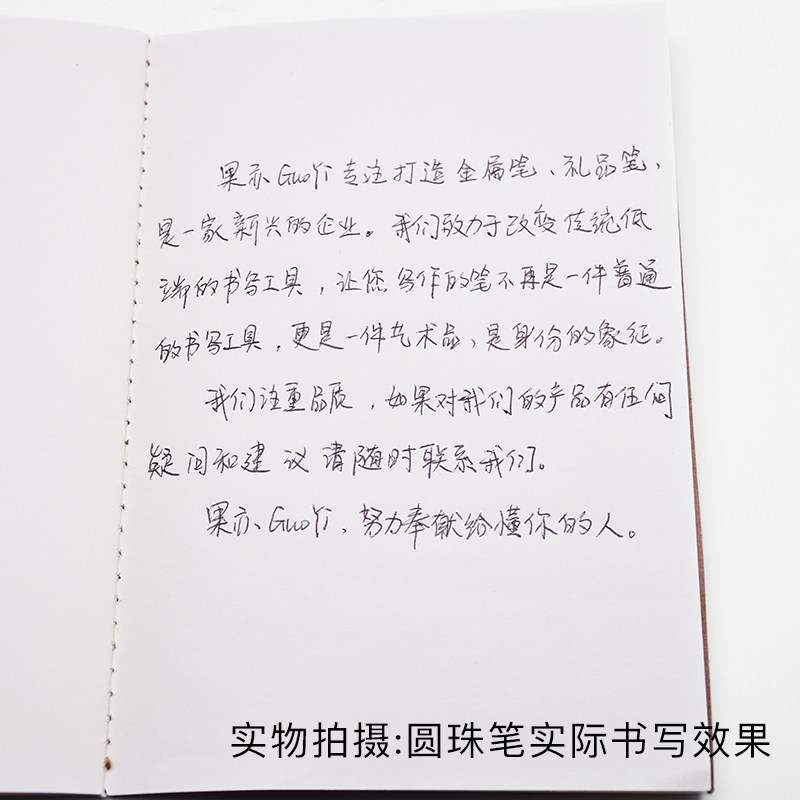 果亦GuoYi专注打造金属笔、礼品笔,
是一家新兴的企业。我们致力于改变传统低
端的书写工具，让您写作的笔不再是一件普通
的书写工具，更是一件艺术品，是身份的象征。
我们注重品质，如果对我们的产品有任何
疑问和建议请随时联系我们。
果亦、GuoYi、努力奉献给懂你的人。
实物拍摄:圆珠笔实际书写效果